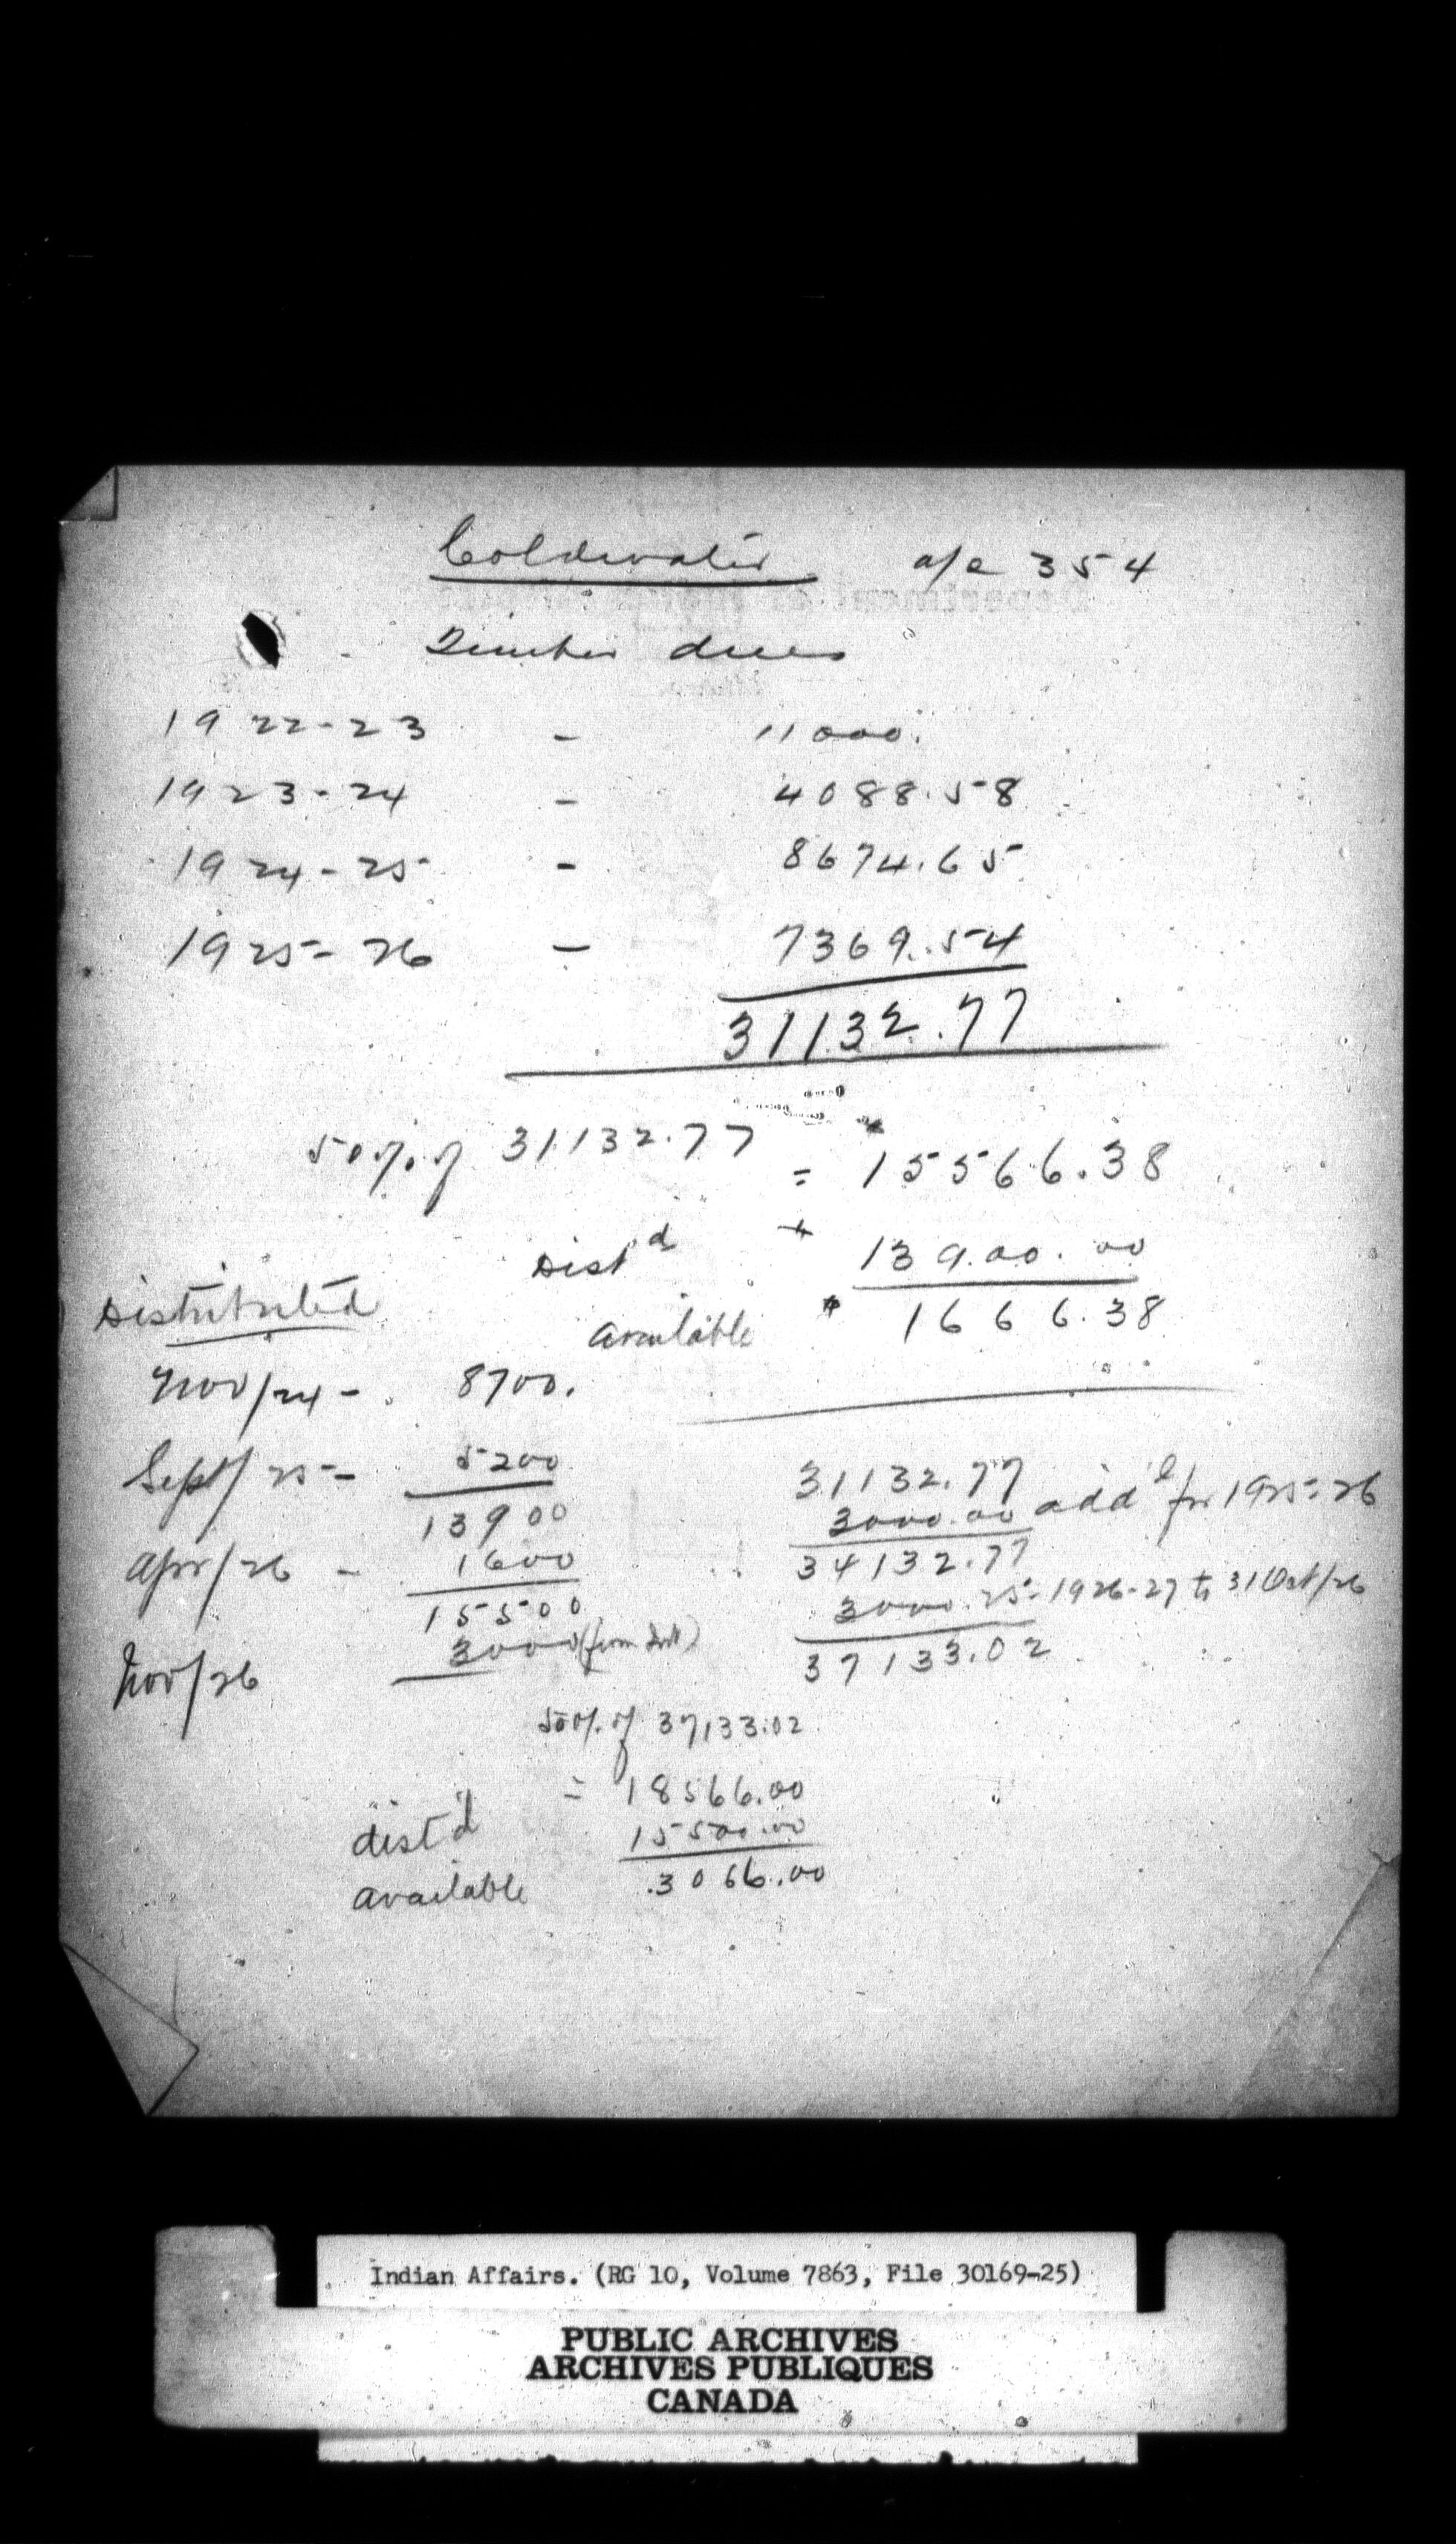 Coldwater a/c 354
Timber dues
1922-23 - 11000.
1923-24 - 4088.58
1924-25 - 8674.65
1925-26 - 7369.54
31132.77
50% of 31132.77 = 15566.38
Dist'd 13900.00
available 1666.38
Distributed
Nov/24 - 8700.
Sept/25 - 5200
13900
Apr/26 - 1600
15500
Nov/26 3000
31132.77
3000.00 add'l for 1925-26
34132.77
3000.25 - 1926-27 to 31 Oct/26
37133.02
50% of 37133.02
= 18566.00
dist'd 15500.00
available 3066.00
Indian Affairs. (RG 10, Volume 7863, File 30169-25)
PUBLIC ARCHIVES
ARCHIVES PUBLIQUES
CANADA